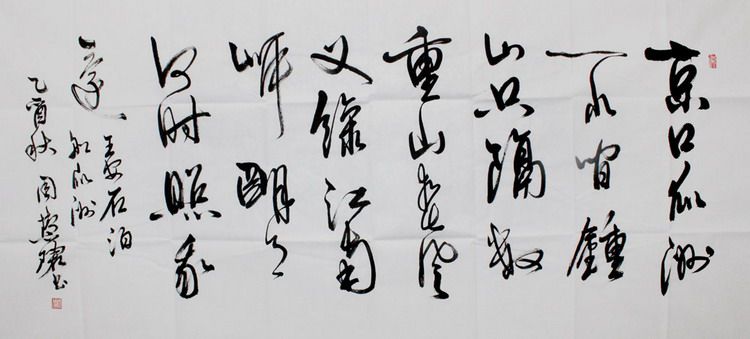 京口瓜洲
一水间鍾
山只隔数
重山春风
又绿江南
岸明月
何时照我
还
王安石泊
船瓜洲
乙酉秋周慧珺书